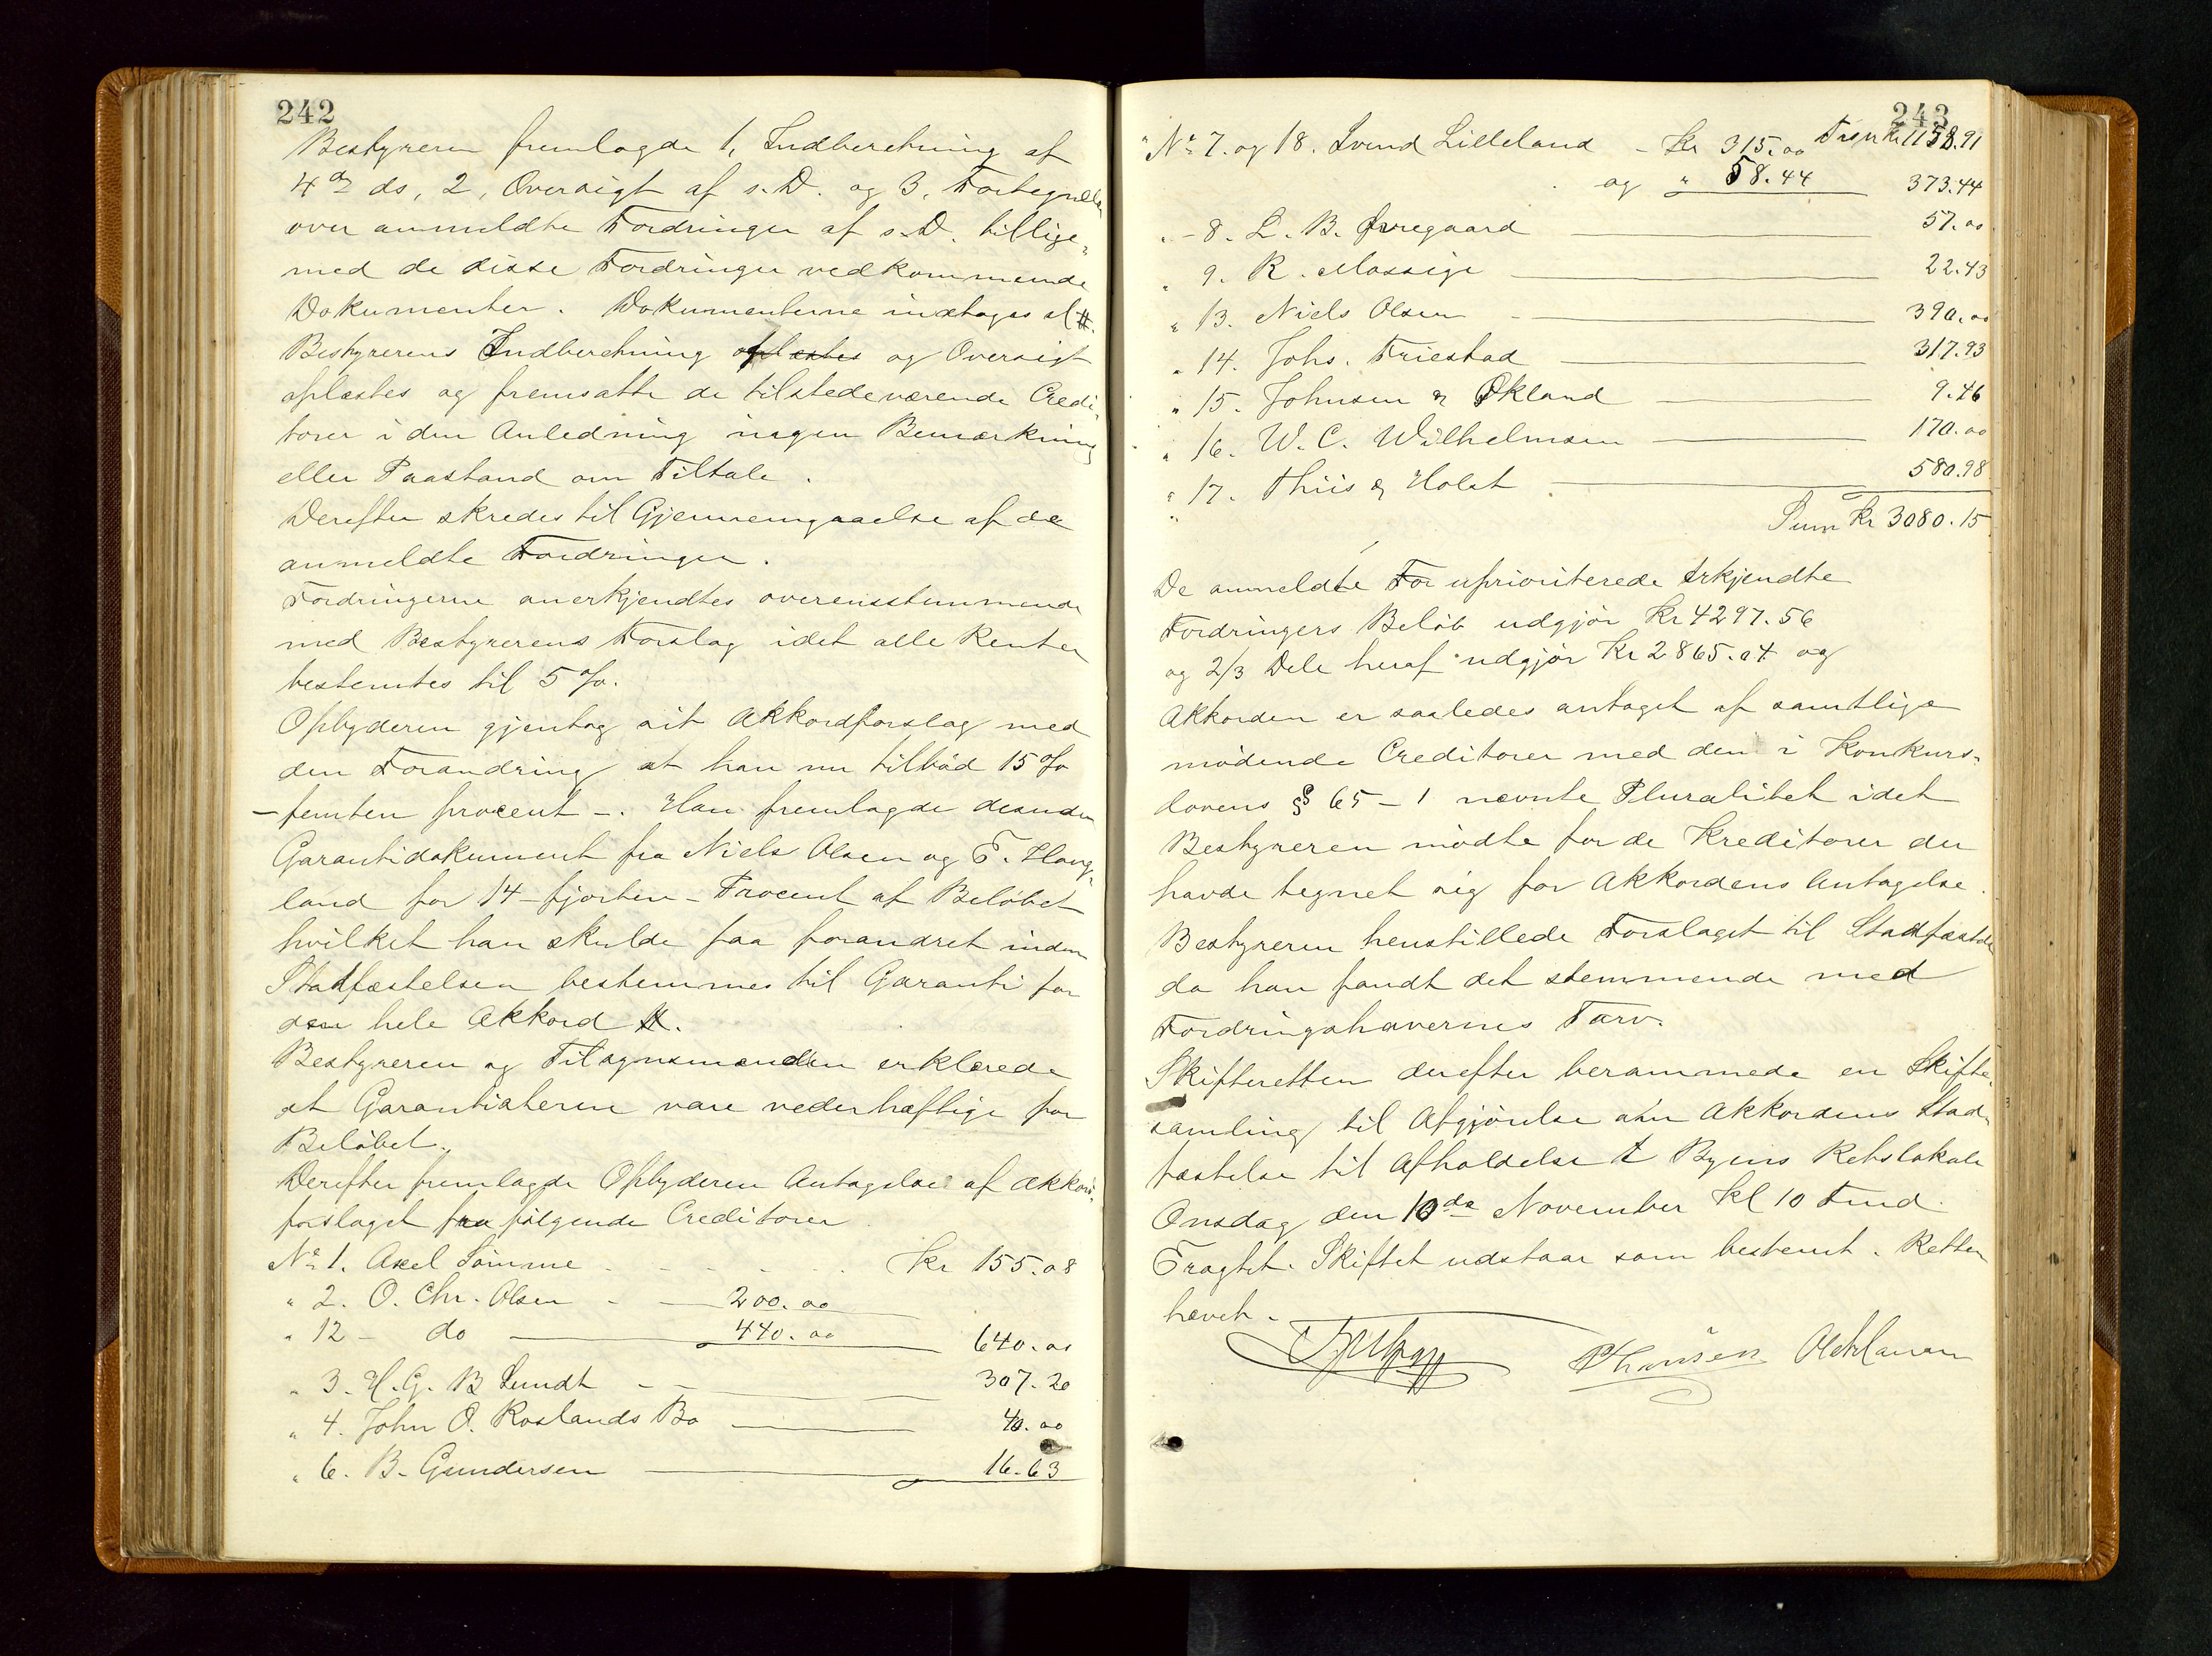 242
Bestyreren fremlagde 1, Indberetning af
4de ds, 2, Oversigt af s. D. og 3, Fortegnelse
over anmeldte Fordringer af s. D. tillige-
med de disse Fordringer vedkommende
Dokumenter. Dokumenterne indtages
Bestyrerens Indberetning oplæstes og Oversigt
oplæstes og fremsatte de tilstedeværende Credi-
torer i den Anledning ingen Bemærkning
eller Paastand om Tiltale.
Derefter skredes til Gjennemgaaelse af de
anmeldte Fordringer.
Fordringerne anerkjendtes overensstemmende
med Bestyrerens Forslag idet alle Renter
bestemtes til 5 %.
Opbyderen gjentog sit Akkordforslag med
den Forandring at han nu tilbød 15 %
– femten procent –. Han fremlagde desuden
Garantidokument fra Niels Olsen og E. Haug-
land for 14 – fjorten – Procent af Beløbet
hvilket han skulde faa forandret inden
Stadfæstelsen bestemmes til Garanti for
den hele Akkord
Bestyreren og Tilsynsmanden erklærede
at Garantisterne vare vederhæftige for
Beløbet.
Derefter fremlagde Opbyderen Antagelse af Akkord-
forslaget fra følgende Creditorer
No 1. Axel Sømme Kr 155.08
" 2. O. Chr. Olsen 200.00
" 12 – do 440.00 640.00
" 3. H. G. B Sundt 307.20
" 4. John O. Roslands Bo 40.00
" 6. B. Gundersen 16.63
243
Transp Kr 1158.91
No 7. og 18. Svend Lilleland – Kr 315.00
og " 58.44 373.44
" 8. L. B. Øvregaard 57.00
" 9. R. Mossige 22.43
" 13. Niels Olsen 390.00
" 14. Johs. Friestad 317.93
" 15. Johnsen & Økland 9.46
" 16. W. C. Wilhelmsen 170.00
" 17. Thiis & Holst 580.98
Sum Kr 3080.15
De anmeldte For uprioriterede Erkjendte
Fordringers Beløb udgjør Kr 4297.56
og 2/3 Dele heraf udgjør Kr 2865.04 og
Akkorden er saaledes antaget af samtlige
mødende Creditorer med den i Konkurs-
lovens § 65 – 1 nævnte Pluralitet idet
Bestyreren mødte for de Kreditorer der
havde tegnet sig for Akkordens Antagelse.
Bestyreren henstillede Forslaget til Stadfæstelse
da han fandt det stemmende med
Fordringshavernes Tarv.
Skifteretten derefter berammede en Skifte-
samling til Afgjørelse om Akkordens Stad-
fæstelse til Afholdelse i Byens Retslokale
Onsdag den 10de November Kl 10 Fmd.
Fragtet. Skiftet udstaar som bestemt. Retten
hævet.